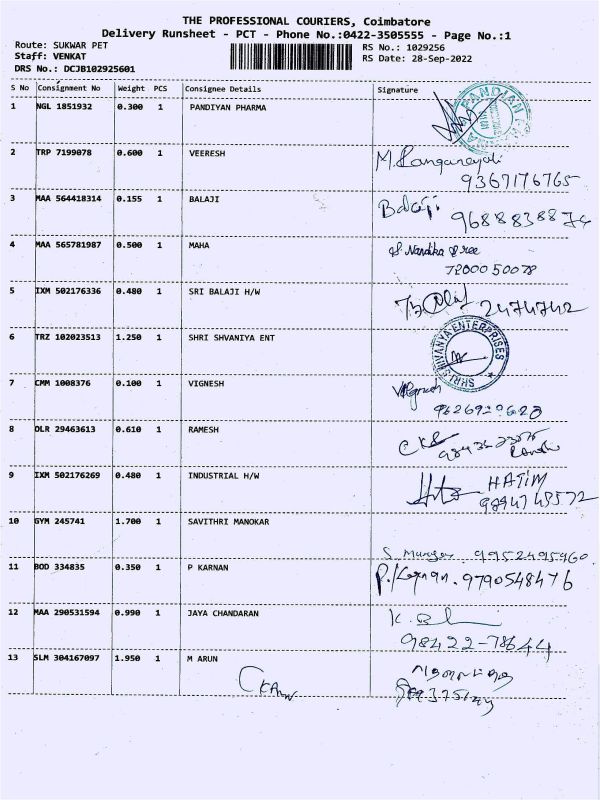 THE PROFESSIONAL COURIERS, Coimbatore
Delivery Runsheet - PCT - Phone No.:0422-3505555 - Page No.:1
Route: SUKWAR PET
RS No.: 1029256
Staff: VENKAT
RS Date: 28-Sep-2022
DRS No.: DCJB102925601
S No Consignment No Weight PCS Consignee Details Signature
1 NGL 1851932 0.300 1 PANDIYAN PHARMA
2 TRP 7199078 0.600 1 VEERESH
9367176765
3 MAA 564418314 0.155 1 BALAJI Balaji
9688838874
4 MAA 565781987 0.500 1 MAHA S. Nandika Sree
7200050078
5 IXM 502176336 0.480 1 SRI BALAJI H/W 2474742
6 TRZ 102023513 1.250 1 SHRI SHVANIYA ENT SHRI SHIVANYA ENTERPRISES
7 CMM 1008376 0.100 1 VIGNESH Vignesh
8 DLR 29463613 0.610 1 RAMESH
9 IXM 502176269 0.480 1 INDUSTRIAL H/W HATIM
10 GYM 245741 1.700 1 SAVITHRI MANOKAR
S. Murugan 9952495960
11 BOD 334835 0.350 1 P KARNAN P. Karnan. 9790548476
12 MAA 290531594 0.990 1 JAYA CHANDARAN
98422-78644
13 SLM 304167097 1.950 1 M ARUN